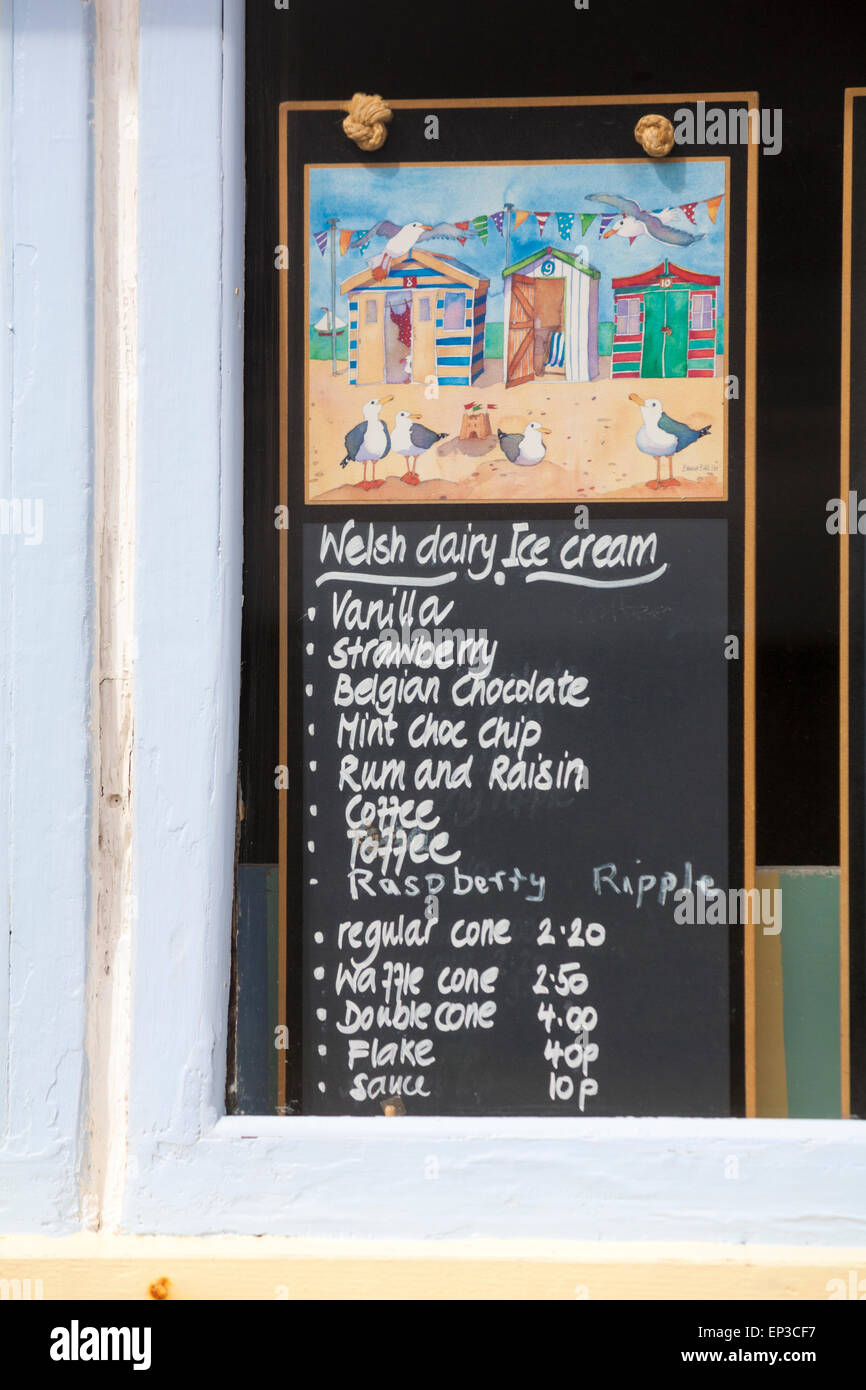 8
9
10
Welsh dairy Ice cream
• Vanilla
• Strawberry
• Belgian Chocolate
• Mint Choc Chip
• Rum and Raisin
• Coffee
• Toffee
• Raspberry Ripple
• regular cone 2.20
• Waffle cone 2.50
• Double cone 4.00
• Flake 40p
• sauce 10p
a alamy stock photo
EP3CF7
www.alamy.com